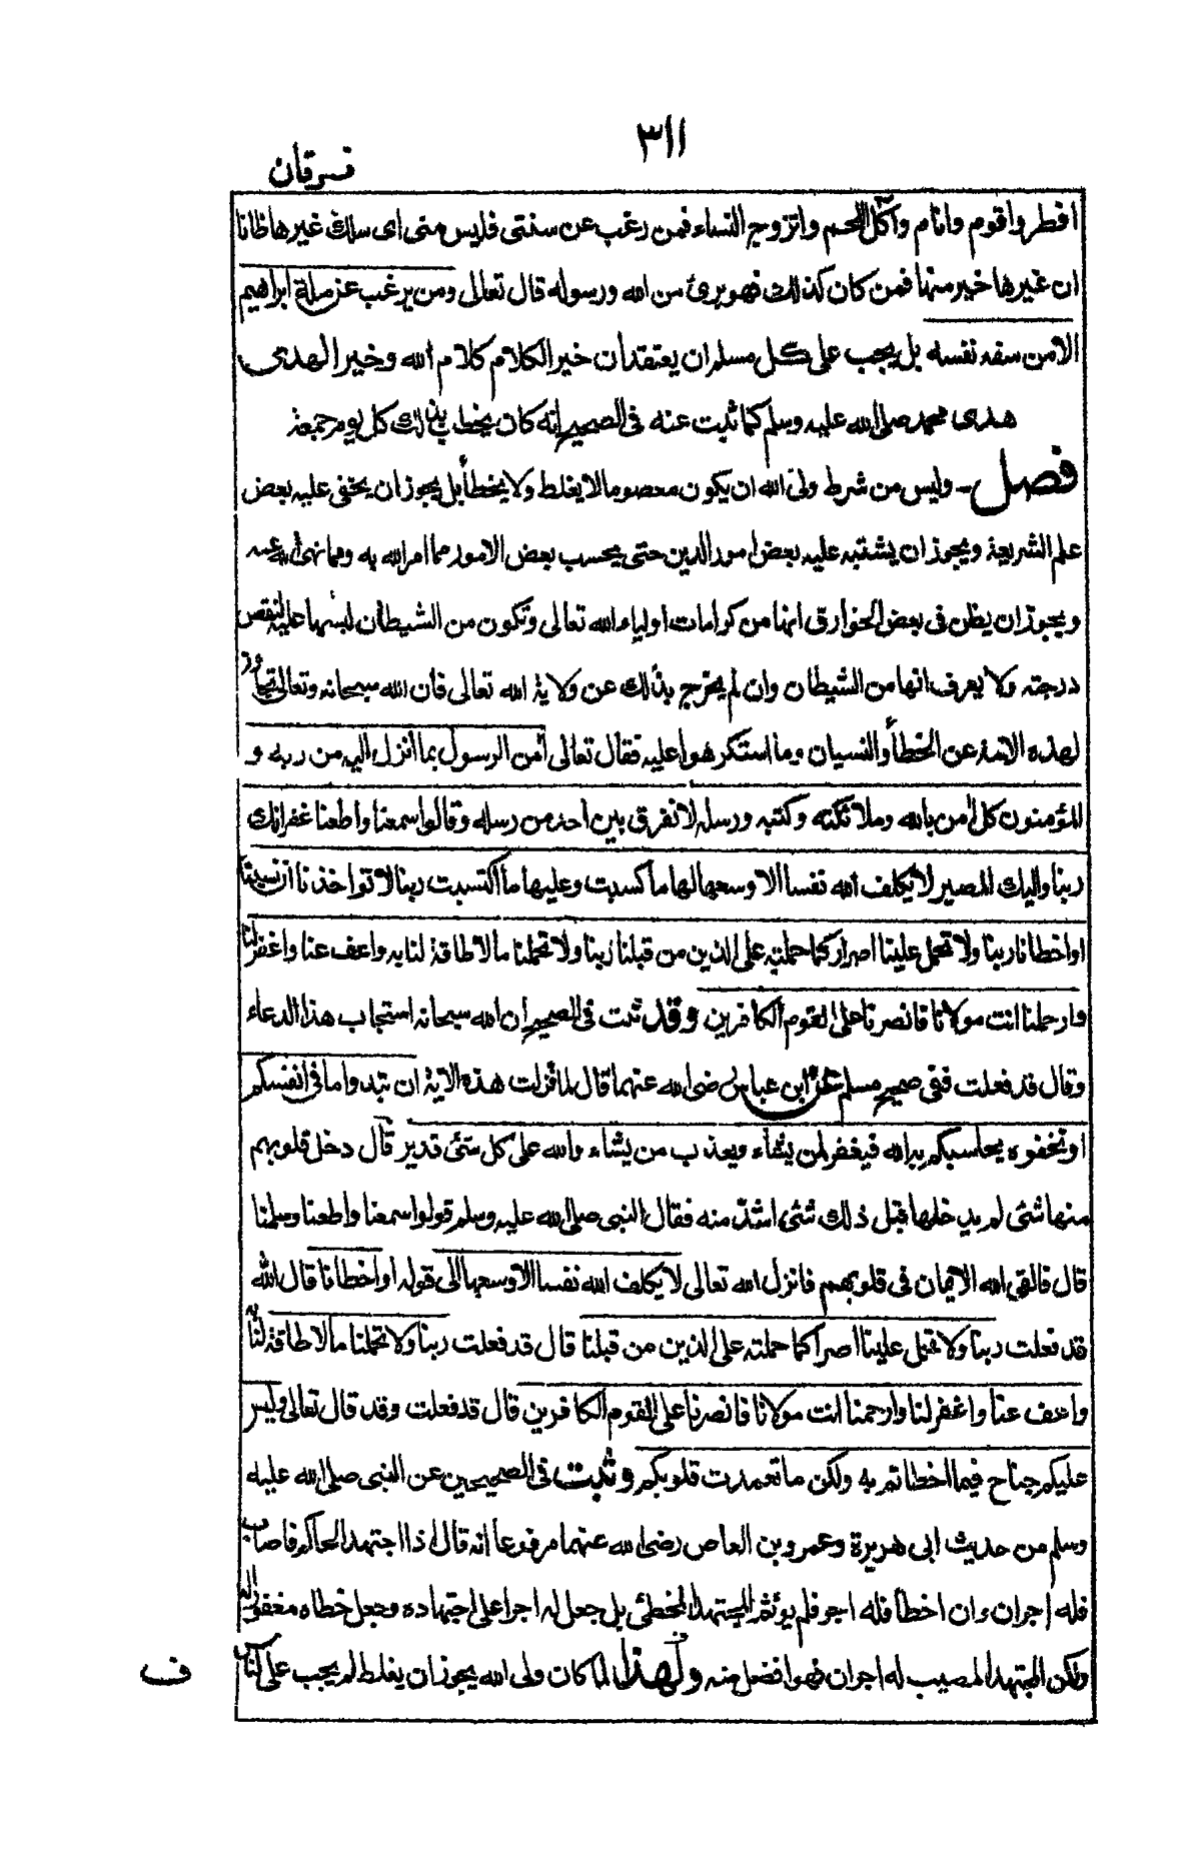 ٣١١
فرقان
افطر واقوم وانام وآكل اللحم واتزوج النساء فمن رغب عن سنتى فليس منى اى سلك غيرها ظانا
ان غيرها خير منها فمن كان كذلك فهو برئ من الله ورسوله قال تعالى ومن يرغب عن ملة ابراهيم
الا من سفه نفسه بل يجب على كل مسلم ان يعتقد ان خير الكلام كلام الله وخير الهدى
هدى محمد صلى الله عليه وسلم كما ثبت عنه فى الصحيح انه كان يخطب بذلك كل يوم جمعة
فصل - وليس من شرط ولى الله ان يكون معصوما لا يغلط ولا يخطأ بل يجوز ان يخفى عليه بعض
علم الشريعة ويجوز ان يشتبه عليه بعض امور الدين حتى يحسب بعض الامور مما امر الله به ومما نهى الله عنه
ويجوز ان يظن فى بعض الخوارق انها من كرامات اولياء الله تعالى وتكون من الشيطان لبسها عليه لنقص
درجته ولا يعرف انها من الشيطان وان لم يخرج بذلك عن ولاية الله تعالى فان الله سبحانه وتعالى تجاوز
لهذه الامة عن الخطأ والنسيان وما استكرهوا عليه فقال تعالى آمن الرسول بما انزل اليه من ربه و
المؤمنون كل امن بالله وملائكته وكتبه ورسله لا نفرق بين احد من رسله وقالوا سمعنا واطعنا غفرانك
ربنا واليك المصير لا يكلف الله نفسا الا وسعها لها ما كسبت وعليها ما اكتسبت ربنا لا تواخذنا ان نسينا
او اخطانا ربنا ولا تحمل علينا اصرا كما حملته على الذين من قبلنا ربنا ولا تحملنا ما لا طاقة لنا به واعف عنا واغفر لنا
وارحمنا انت مولانا فانصرنا على القوم الكافرين وقد ثبت فى الصحيح ان الله سبحانه استجاب هذا الدعاء
وقال قد فعلت ففى صحيح مسلم عن ابن عباس رضى الله عنهما قال لما نزلت هذه الاية ان تبدوا ما فى انفسكم
او تخفوه يحاسبكم به الله فيغفر لمن يشاء ويعذب من يشاء والله على كل شئ قدير قال دخل قلوبهم
منها شئ لم يدخلها قبل ذلك شئ اشد منه فقال النبى صلى الله عليه وسلم قولوا سمعنا واطعنا وسلمنا
قال فالقى الله الايمان فى قلوبهم فانزل الله تعالى لا يكلف الله نفسا الا وسعها الى قوله او اخطانا قال الله
قد فعلت ربنا ولا تحمل علينا اصرا كما حملته على الذين من قبلنا قال قد فعلت ربنا ولا تحملنا ما لا طاقة لنا به
واعف عنا واغفر لنا وارحمنا انت مولانا فانصرنا على القوم الكافرين قال قد فعلت وقد قال تعالى وليس
عليكم جناح فيما اخطاتم به ولكن ما تعمدت قلوبكم وثبت فى الصحيحين عن النبى صلى الله عليه
وسلم من حديث ابى هريرة وعمرو بن العاص رضى الله عنهما مرفوعا انه قال اذا اجتهد الحاكم فاصاب
فله اجران وان اخطأ فله اجر فلم يوثم المجتهد المخطئ بل جعل له اجرا على اجتهاده وجعل خطاه مغفورا له
ولكن المجتهد المصيب له اجران فهو افضل منه ولهذا لما كان ولى الله يجوز ان يغلط لم يجب على
ف